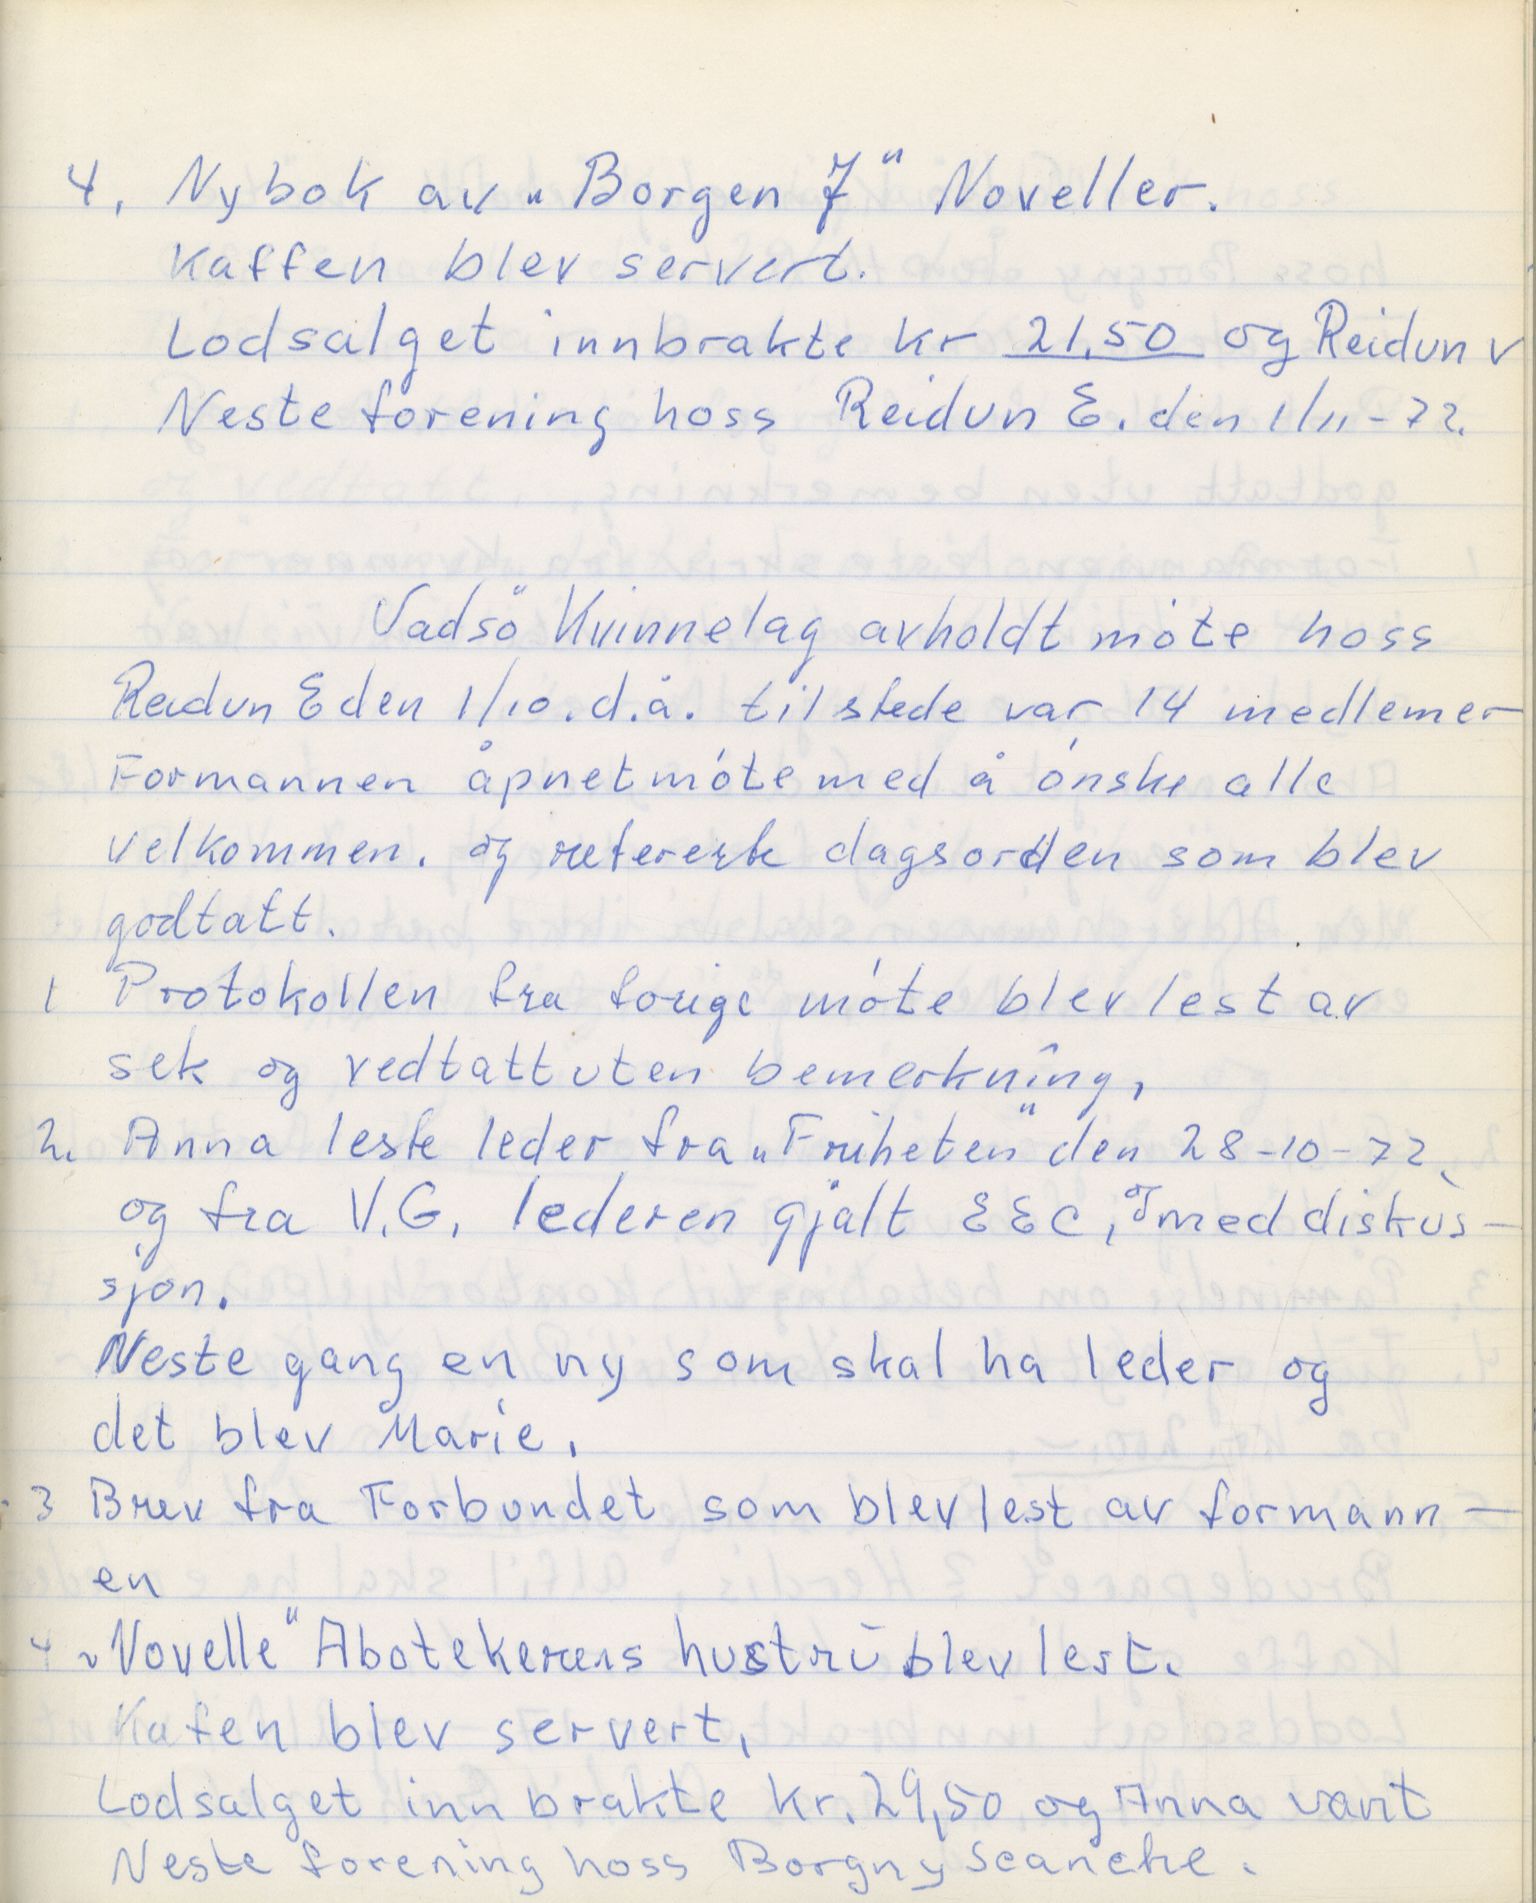 4. Nybok av „Borgen J" Noveller.
Kaffen blev servert.
Lodsalget innbrakte kr 21,50 og Reidun v
Neste forening hoss Reidun E. den 1/11-72.
Vadsö Kvinnelag avholdt móte hoss
Reidun E den 1/10. d.å. tilstede var 14 medlemer
Formannen åpnet móte med å ónske alle
velkommen. og refererte dagsorden som blev
godtatt.
1 Protokollen fra forige móte blev lest av
sek og vedtatt uten bemerkning,
2. Anna leste leder fra „Friheten" den 28-10-72.
og fra V.G. lederen gjalt EEC, og med diskus-
sjon.
Neste gang en ny som skal ha leder og
det blev Marie.
3 Brev fra Forbundet som blev lest av formann-
en
4 „Novelle" Abotekerens hustru blev lest.
Kafen blev servert,
Lodsalget innbrakte kr. 29,50 og Anna vant
Neste forening hoss Borgny Scancke.